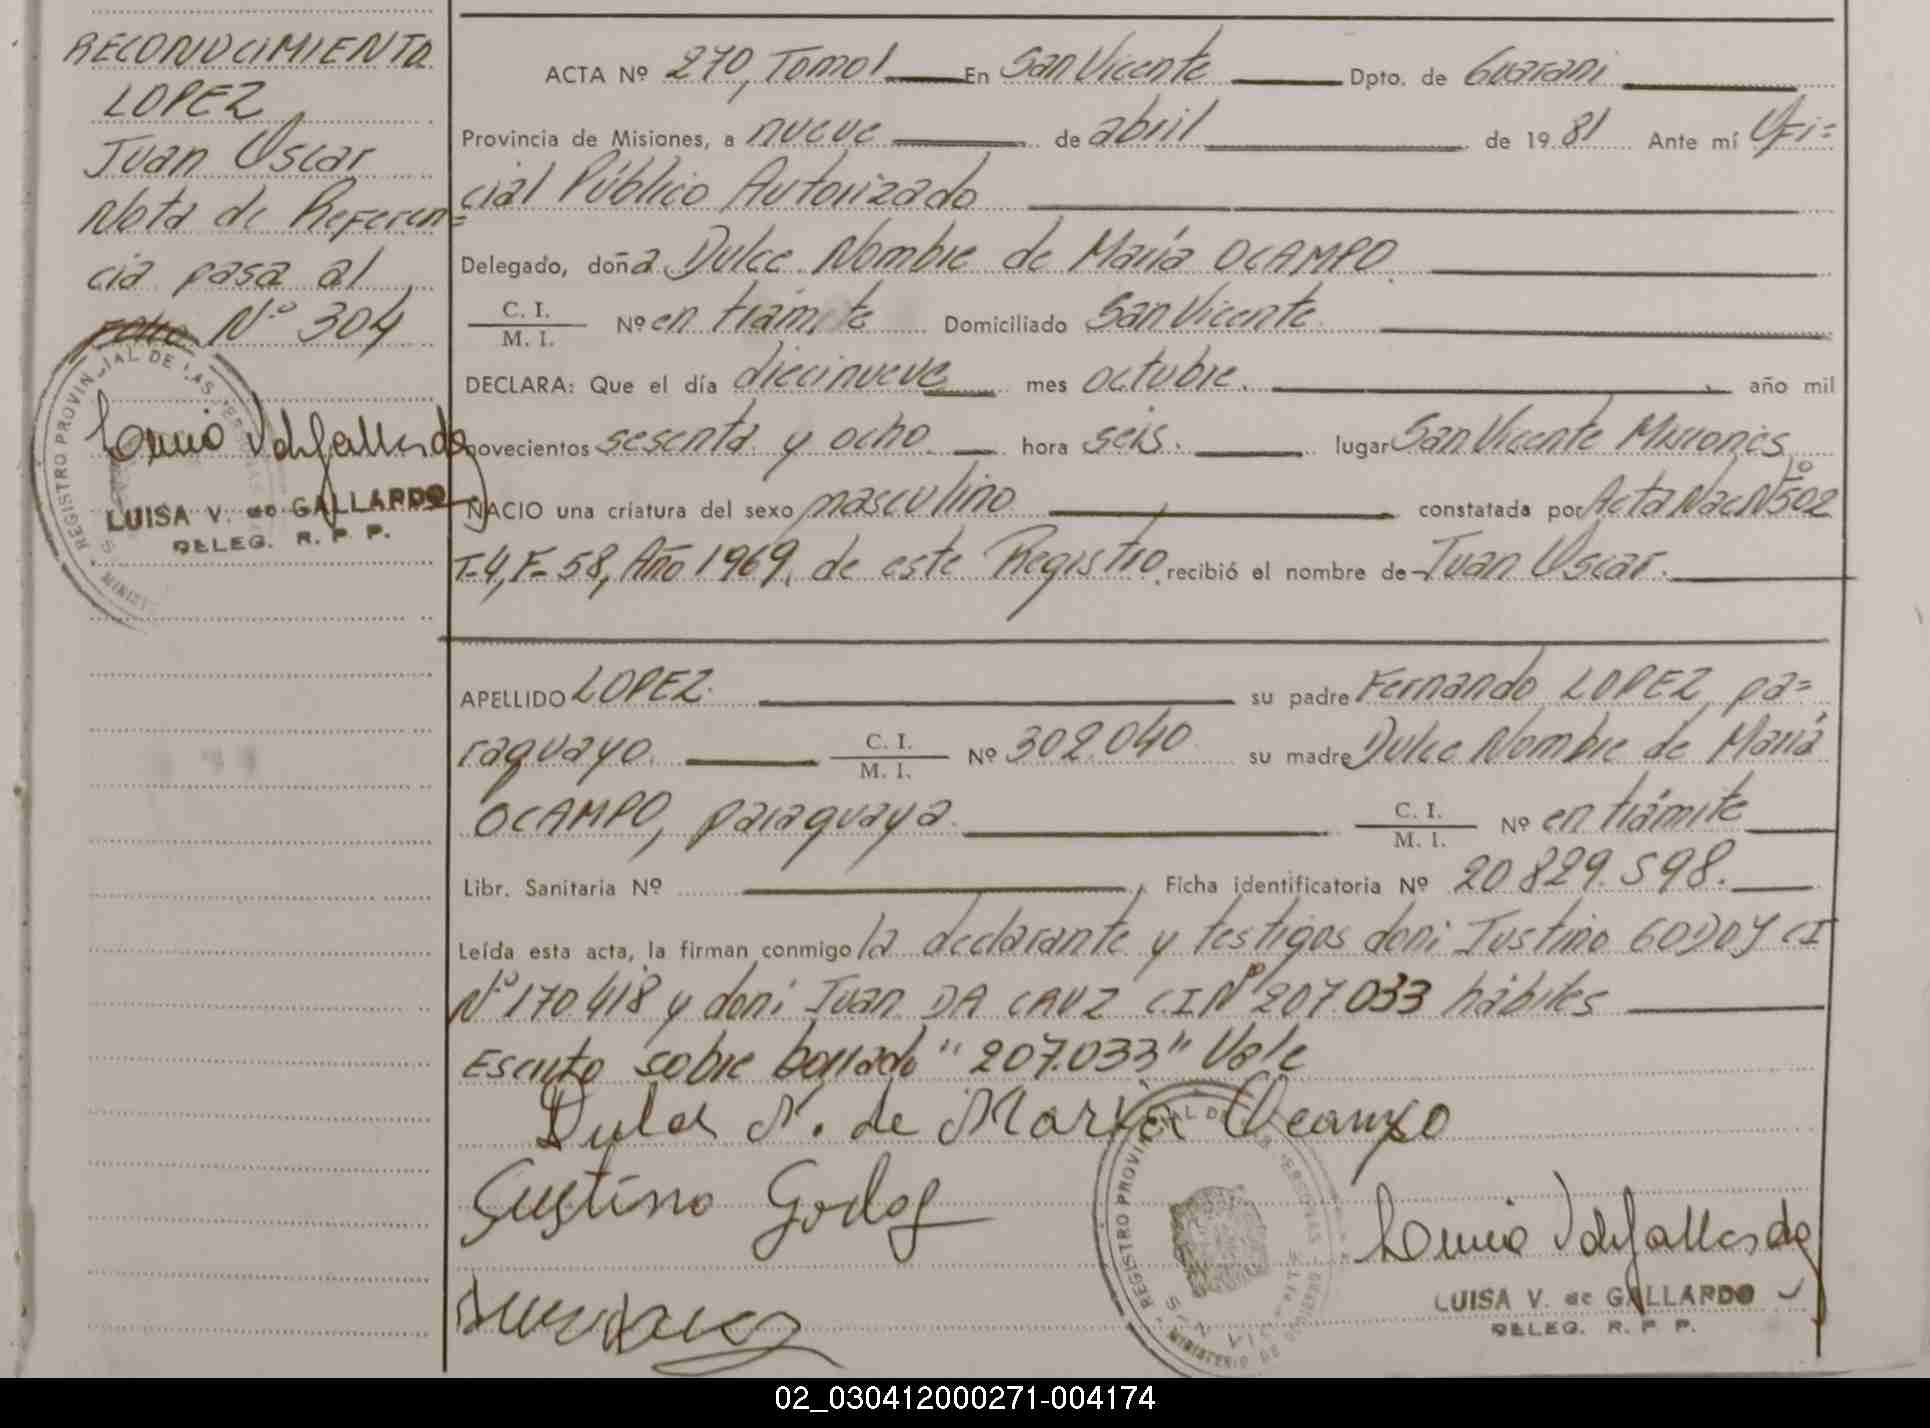 RECONOCIMIENTO
LOPEZ
Juan Oscar
Nota de Referen=
cia pasa al
Folio Nº 304
LUISA V. de GALLARDO
DELEG. R. P. P.
ACTA Nº 270, Tomo 1 En San Vicente Dpto. de Guaraní
Provincia de Misiones, a nueve de abril de 1981 Ante mí Ofi=
cial Público Autorizado
Delegado, doña Dulce Nombre de María OCAMPO
C. I.
M. I. Nº en trámite Domiciliado San Vicente
DECLARA: Que el día diecinueve mes octubre. año mil
novecientos sesenta y ocho hora seis. lugar San Vicente Misiones
NACIO una criatura del sexo masculino constatada por Acta Nac Nº 502
T-4, F-58, Año 1969, de este Registro, recibió el nombre de Juan Oscar.
APELLIDO LOPEZ. su padre Fernando LOPEZ, pa=
raguayo. C. I.
M. I. Nº 302.040 su madre Dulce Nombre de María
OCAMPO, paraguaya. C. I.
M. I. Nº en trámite
Libr. Sanitaria Nº Ficha identificatoria Nº 20.829.598.
Leída esta acta, la firman conmigo la declarante y testigos don: Justino GODOY CI
Nº 170.418 y don: Juan DA CRUZ C.I Nº 207.033 hábiles
Escrito sobre borrado "207.033" Vale
Dulce N. de María Ocampo
Justino Godoy
REGISTRO PROVINCIAL DE LAS PERSONAS
MINISTERIO DE GOBIERNO
LUISA V. de GALLARDO
DELEG. R. P. P.
02_030412000271-004174